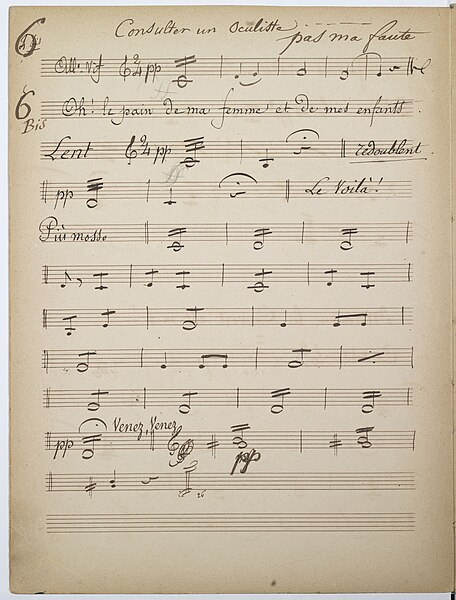 6
Consulter un oculiste pas ma faute
All: vif 2/4 pp
6
Bis
Oh! le pain de ma femme et de mes enfants.
Lent 2/4 pp redoublent.
pp Le Voilà!
Più mosso
pp Venez, Venez
pp